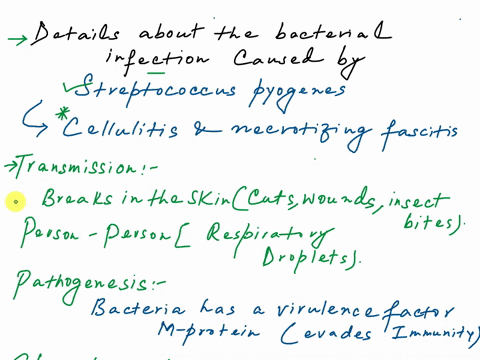 → Details about the bacterial
infection Caused by
✓ Streptococcus pyogenes
* Cellulitis & necrotizing fascitis
→ Transmission:-
Breaks in the skin (Cuts, wounds, insect
bites).
Person-Person [Respiratory
Droplets).
Pathogenesis:-
Bacteria has a virulence factor
M-protein (evades Immunity)